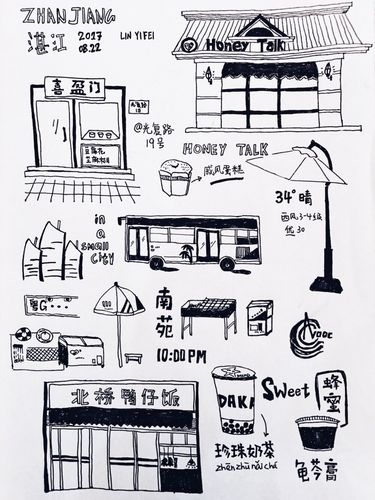 ZHANJIANG
湛江 2017
08.22
LIN YIFEI
Honey Talk
喜盈门
豆腐花
芝麻糊
@光复路
19号
HONEY TALK
戚风蛋糕
34°晴
西风3-4级
优30
in
a
small
city
粤G
南
苑
10:00PM
北桥鸭仔饭
DAKA
Sweet
蜂
蜜
珍珠奶茶
zhēn zhū nǎi chá
龟苓膏